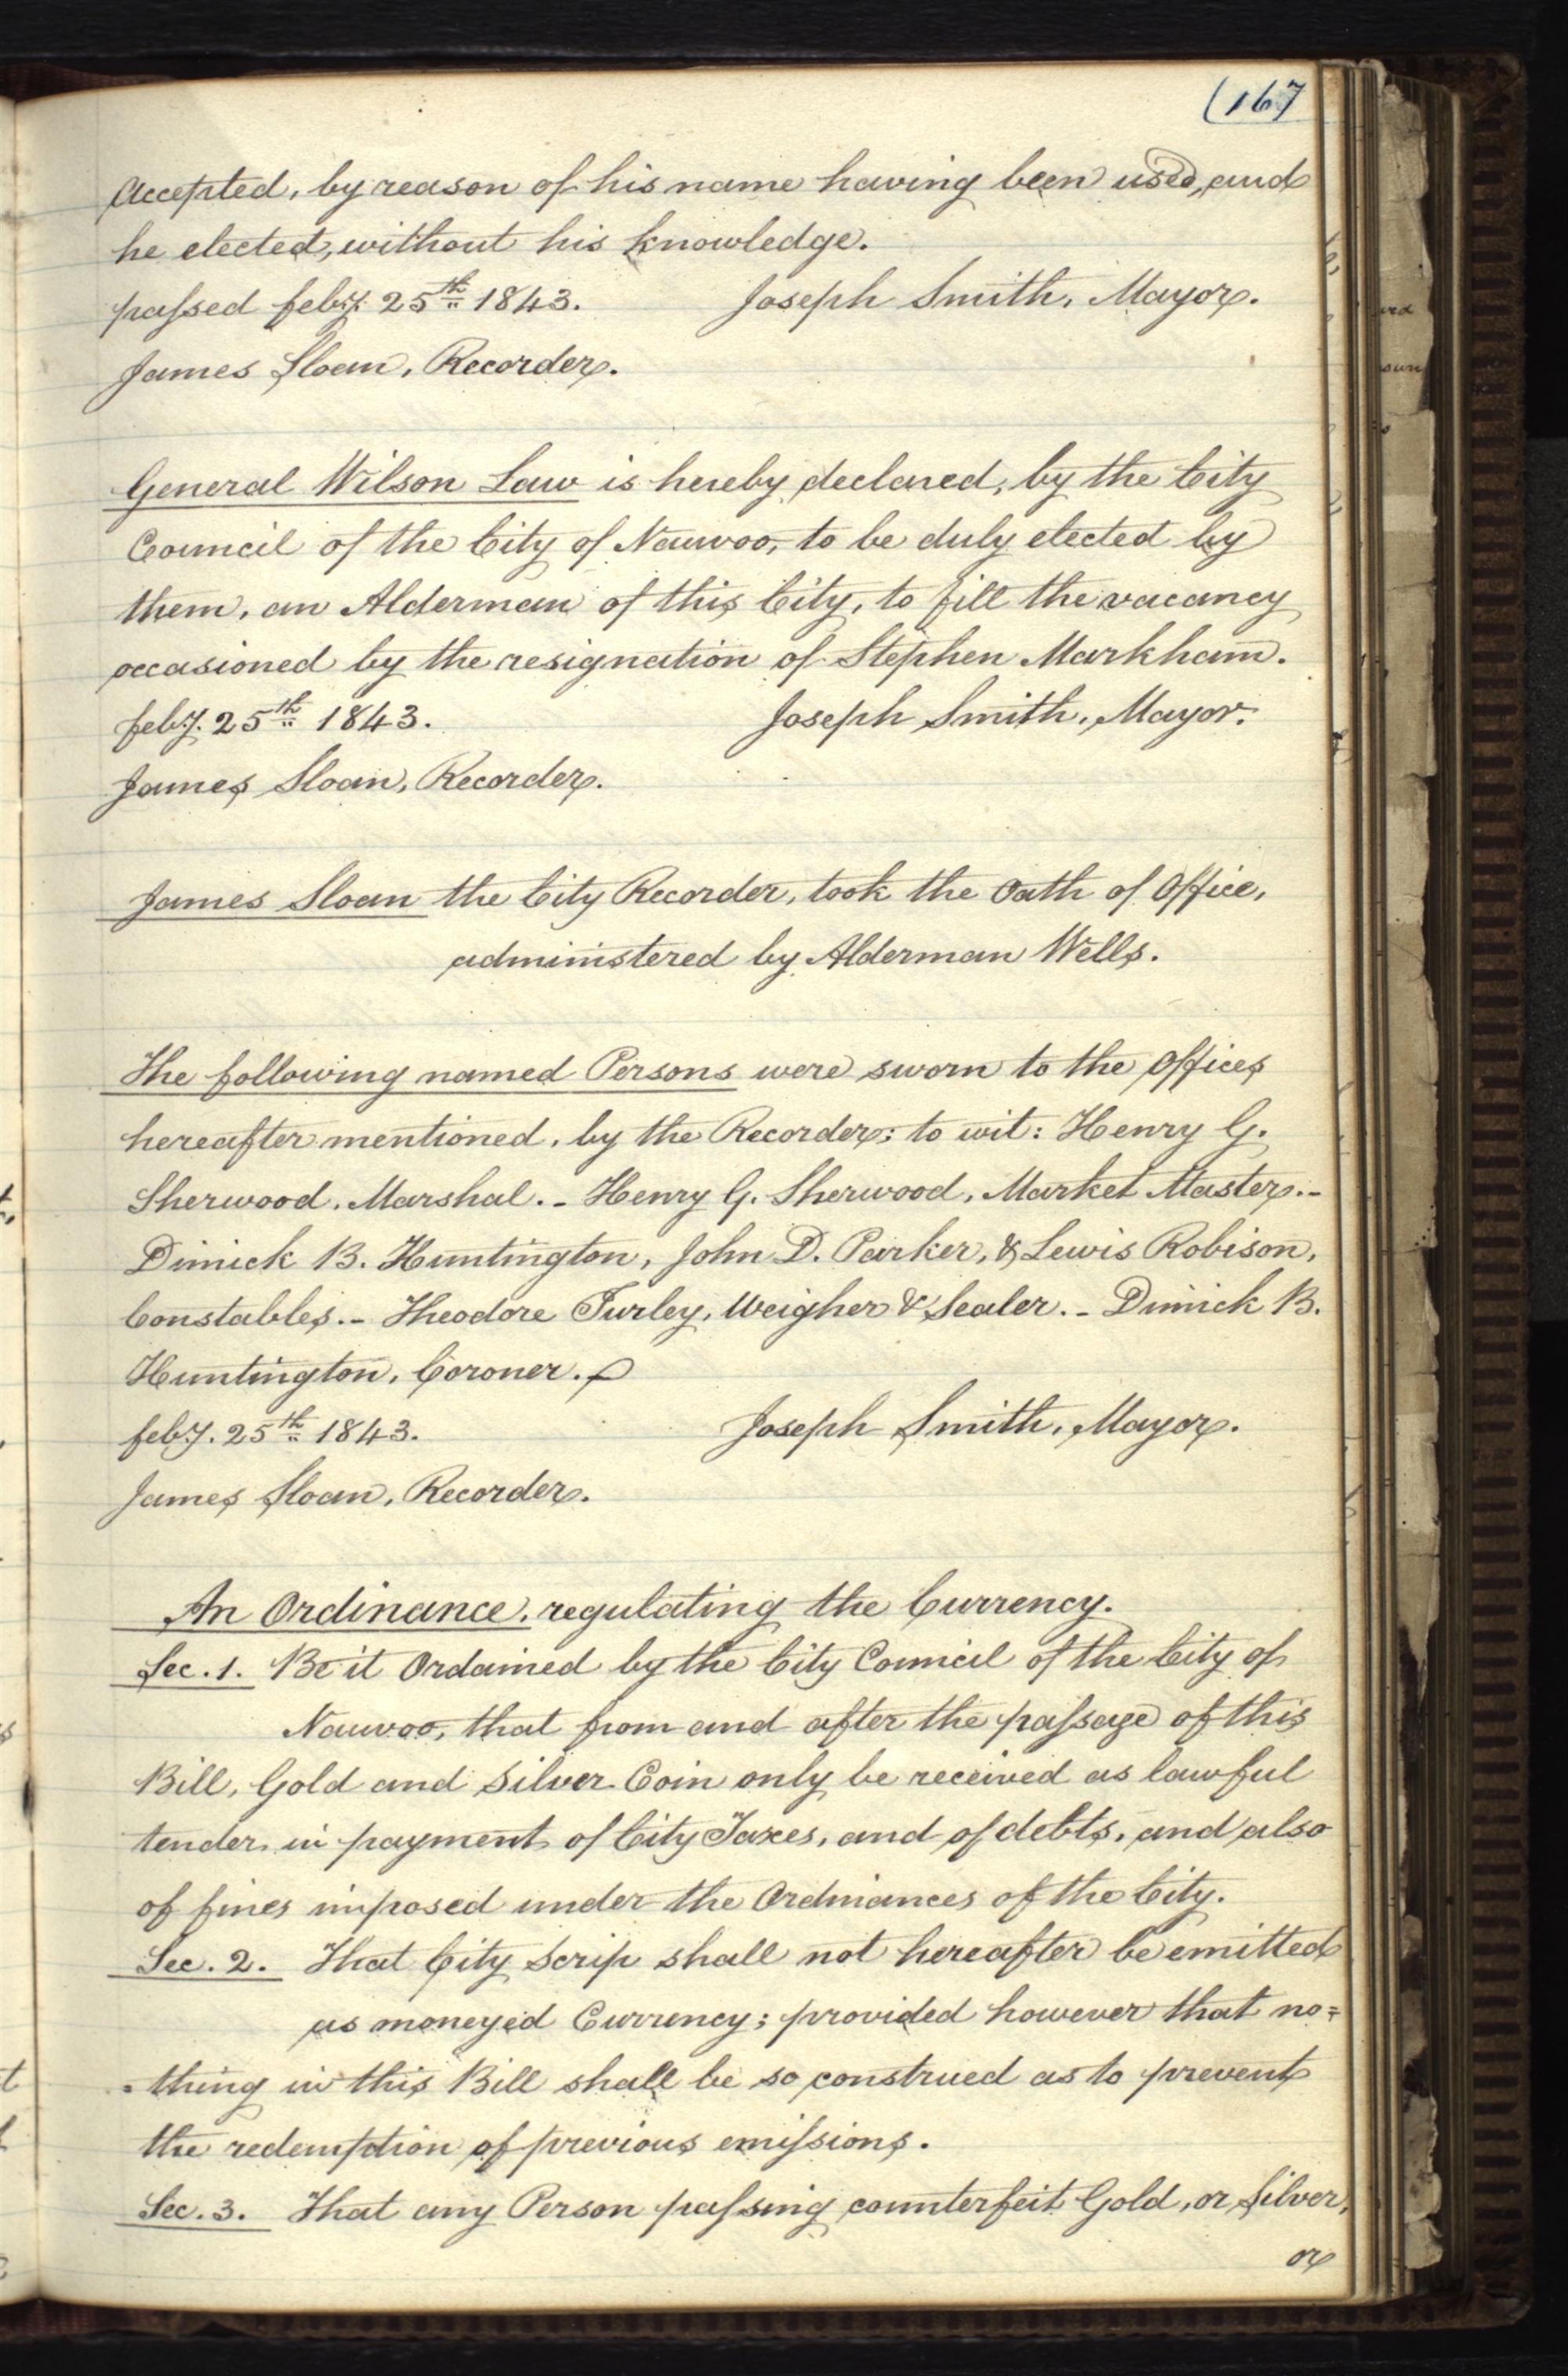 (167
Accepted, by reason of his name having been used, and
he elected, without his knowledge.
passed feby. 25th 1843. Joseph Smith, Mayor.
James Sloan, Recorder.
General Wilson Law is hereby declared, by the City
Council of the City of Nauvoo, to be duly elected by
them, an Alderman of this City, to fill the vacancy
occasioned by the resignation of Stephen Markham.
feby. 25th 1843. Joseph Smith, Mayor.
James Sloan, Recorder.
James Sloan the City Recorder, took the Oath of Office,
administered by Alderman Wells.
The following named Persons were sworn to the Offices
hereafter mentioned, by the Recorder; to wit: Henry G.
Sherwood, Marshal. - Henry G. Sherwood, Market Master. -
Dimick B. Huntington, John D. Parker, & Lewis Robison,
Constables. - Theodore Turley, Weigher & Sealer. - Dimick B.
Huntington, Coroner. -
feby. 25th 1843. Joseph Smith, Mayor.
James Sloan, Recorder.
An Ordinance, regulating the Currency.
Sec. 1. Be it Ordained by the City Council of the City of
Nauvoo, that from and after the passage of this
Bill, Gold and Silver Coin only be received as lawful
tender in payment of City Taxes, and of debts, and also
of fines imposed under the Ordinances of the City.
Sec. 2. That City Scrip shall not hereafter be emitted
as moneyed Currency; provided however that no=
=thing in this Bill shall be so construed as to prevent
the redemption of previous emissions.
Sec. 3. That any Person passing counterfeit Gold, or Silver,
or